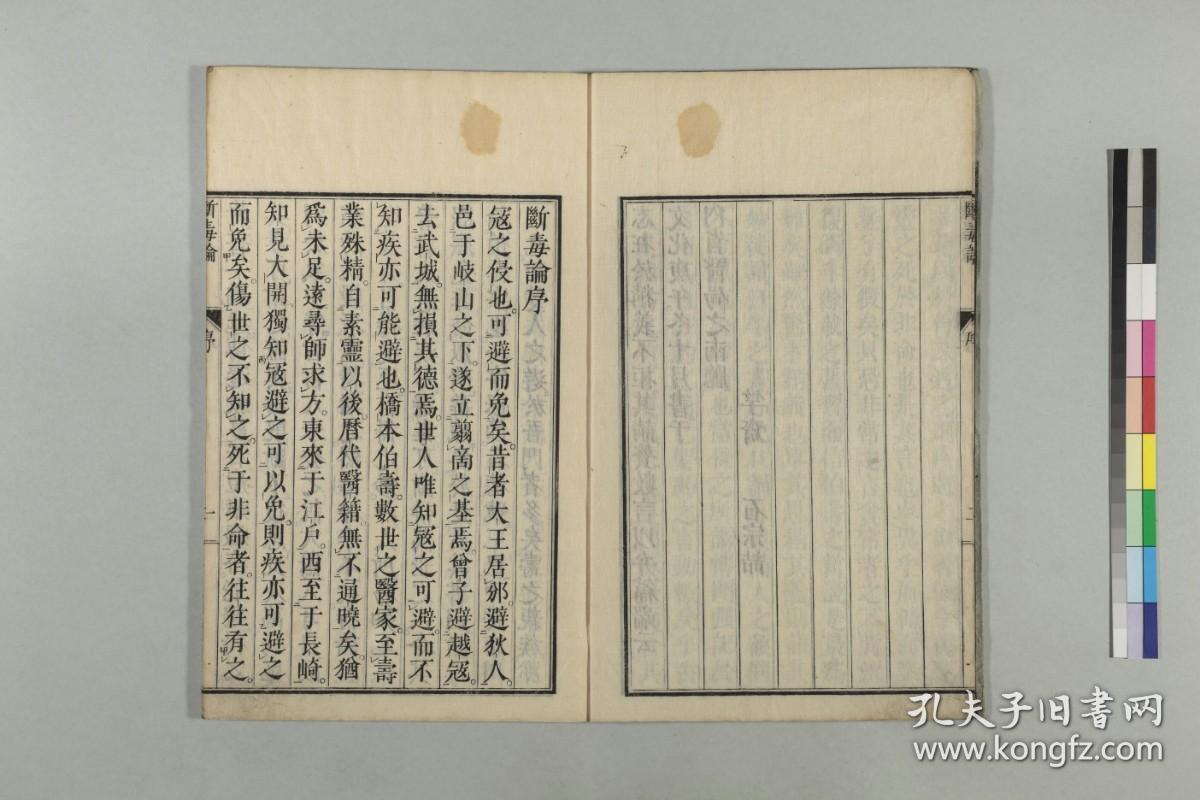 斷毒論序
冦之侵也可避而免矣昔者大王居邠避狄人
邑于岐山之下遂立翦商之基焉曾子避越冦
去武城無損其德焉世人唯知冦之可避而不
知疾亦可能避也橋本伯壽數世之醫家至壽
業殊精自素靈以後曆代醫籍無不通曉矣猶
爲未足遠尋師求方東來于江戶西至于長崎
知見大開獨知冦避之可以免則疾亦可避之
而免矣傷世之不知之死于非命者往往有之
斷毒論
序
一
斷毒論
序
二
孔夫子旧書网
www.kongfz.com